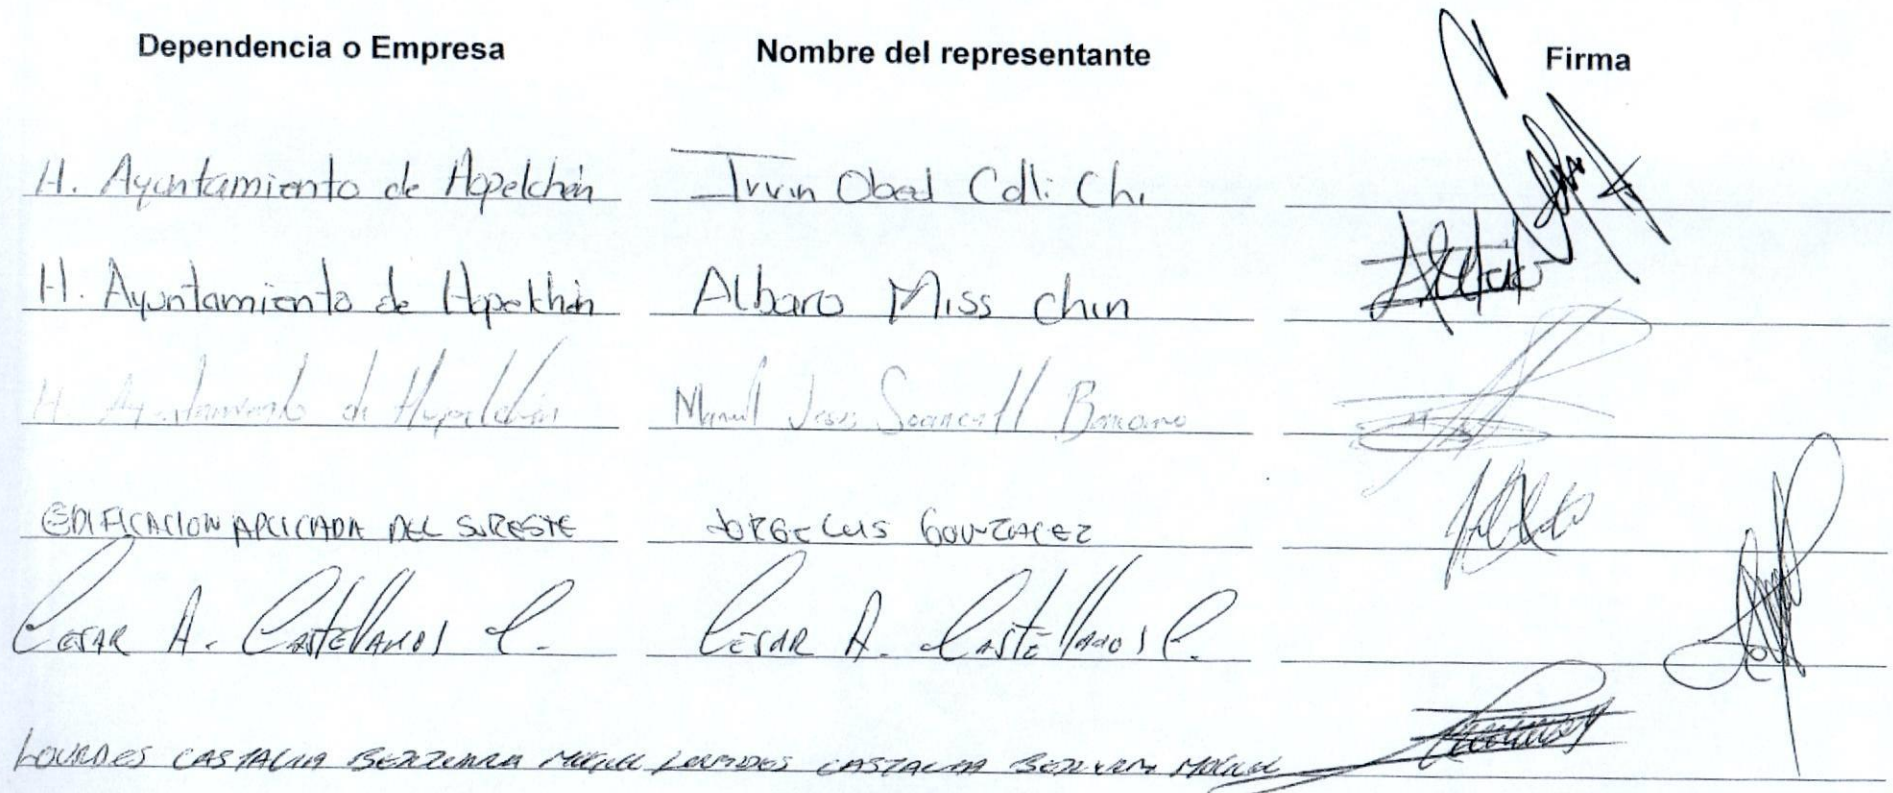 Dependencia o Empresa Nombre del representante Firma
H. Ayuntamiento de Hopelchén Irvin Obed Colli Chi
H. Ayuntamiento de Hopelchén Albaro Miss Chin
H. Ayuntamiento de Hopelchén Manuel Jesus
EDIFICACION APLICADA DEL SURESTE JORGE LUIS GONZALEZ
CESAR A. CASTELLANOS C. CESAR A. CASTELLANOS C.
LOURDES CASTALIA LOURDES CASTALIA